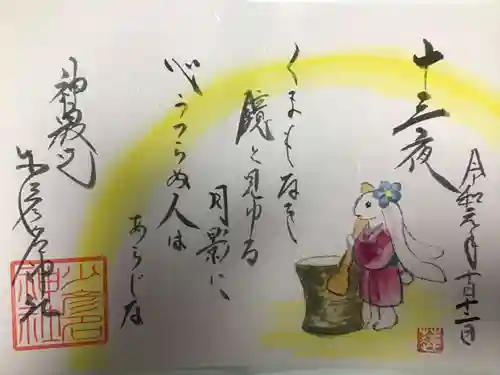 令和元年十月十一日
十三夜
くまもなき
鏡と見ゆる
月影に
心うつらぬ人は
あらじな
神社
神社